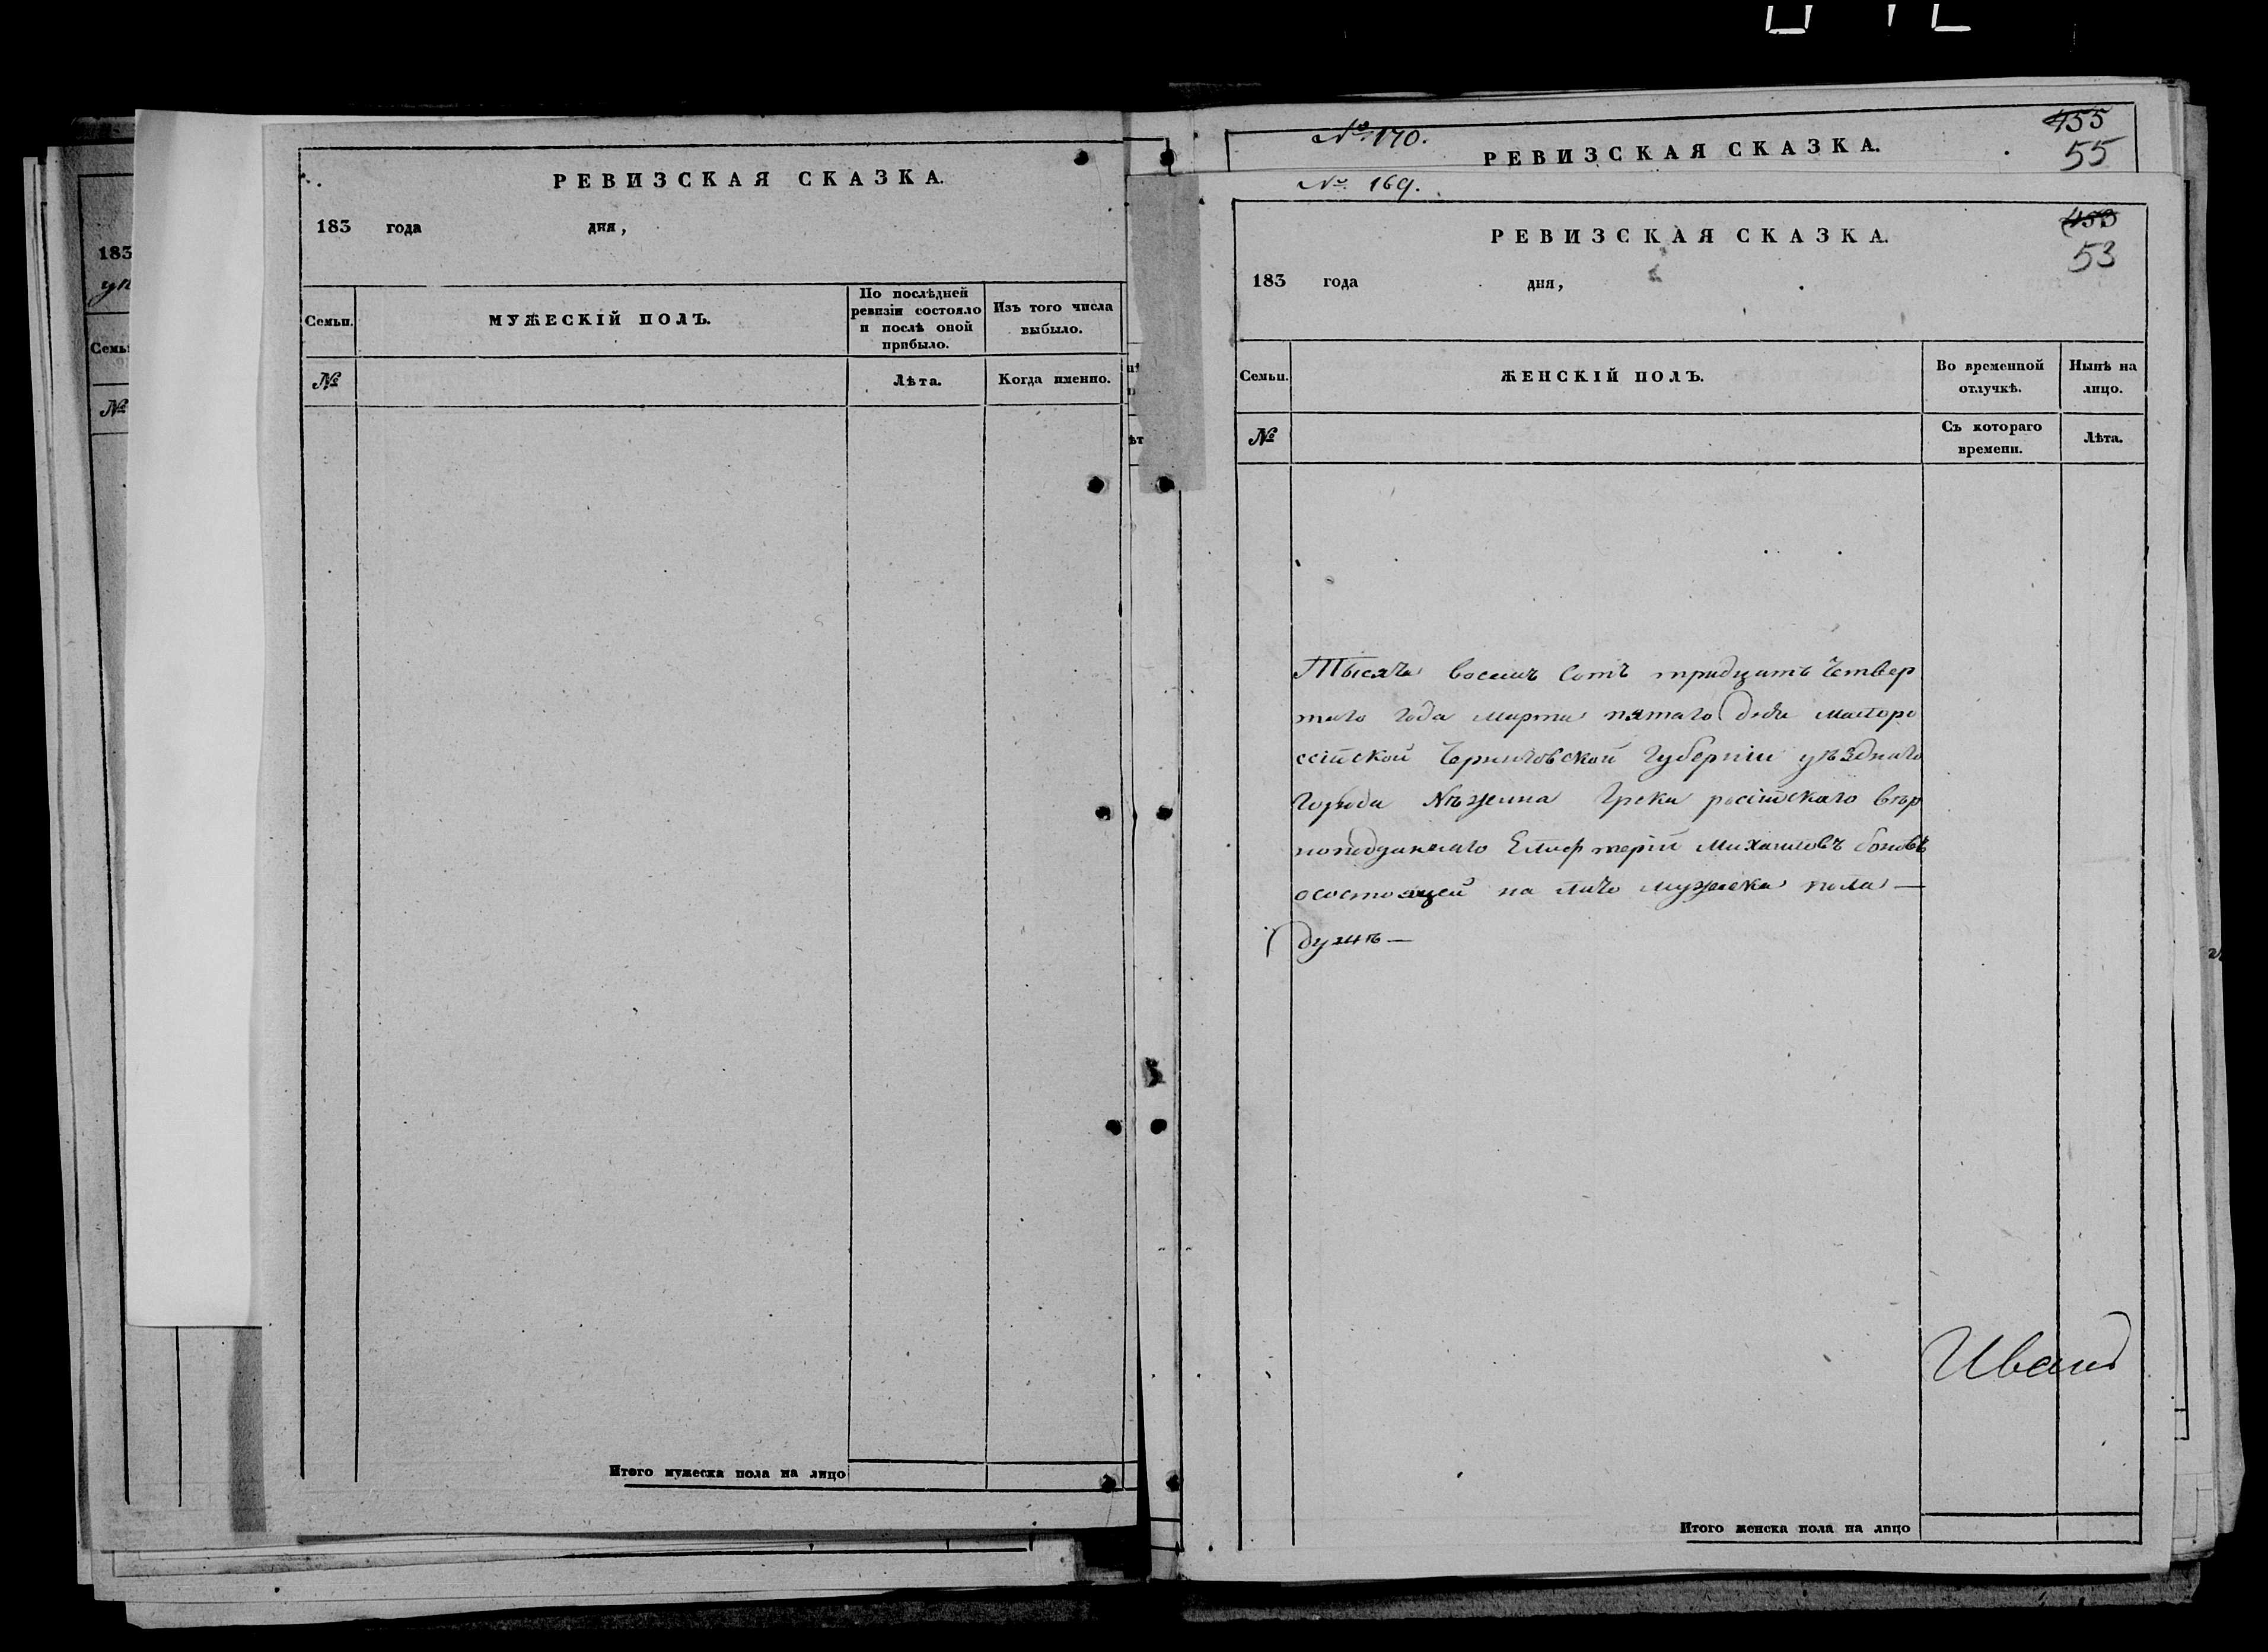 183
уп
Семьи
№
РЕВИЗСКАЯ СКАЗКА.
183 года дня,
Семьи.
МУЖЕСКІЙ ПОЛЪ.
По послѣдней
ревизіи состояло
и послѣ оной
прибыло.
Изъ того числа
выбыло.
№
Лѣта.
Когда именно.
Итого мужеска пола на лицо
№ 170.
РЕВИЗСКАЯ СКАЗКА.
455
55
№ 169.
РЕВИЗСКАЯ СКАЗКА.
453
53
183 года дня,
Семьи.
ЖЕНСКІЙ ПОЛЪ.
Во временной
отлучкѣ.
Нынѣ на
лицо.
№
Съ котораго
времени.
Лѣта.
Тысяча восемь сотъ тридцать четвер
таго года марта пятаго дня малоро
ссійской Черниговской Губерніи уѣзднаго
города Нѣжина Грека россійскаго вѣр
ноподданнаго Елиефтерій Михаиловъ
осостоящей на личо мужеска пола —
душъ —
Иванъ
Итого женска пола на лицо